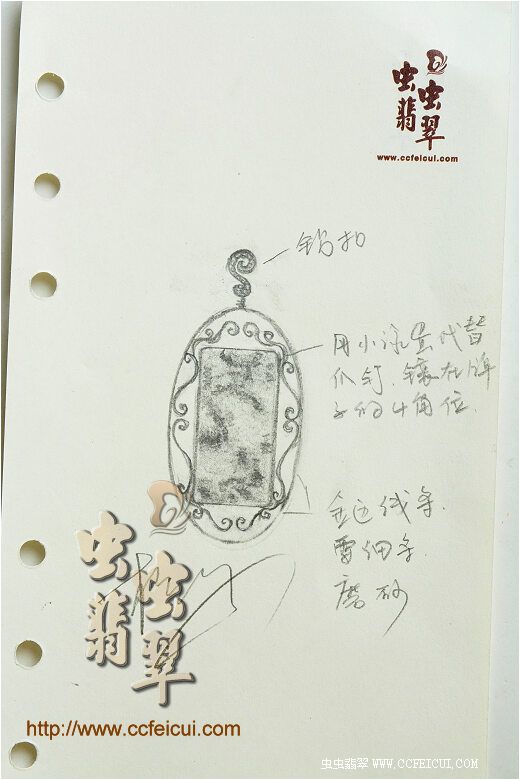 虫虫
翡翠
www.ccfeicui.com
用小冰蛋代替
爪钉.镶在牌
子的4角位.
金色线条.
要细条
磨砂
虫虫
翡翠
http://www.ccfeicui.com
虫虫翡翠 WWW.CCFEICUI.COM